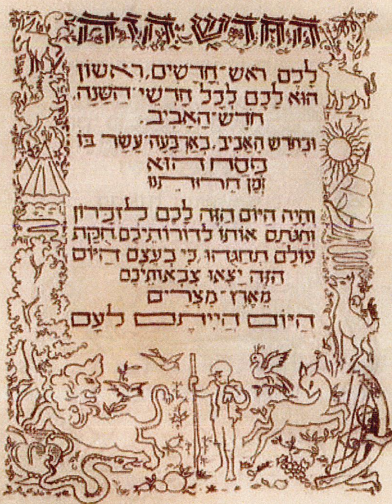 החדש הזה
לָכֶם, רֹאשׁ־חֳדָשִׁים, רִאשׁוֹן
הוּא לָכֶם לְכָל חָדְשֵׁי־הַשָּׁנָה,
חֹדֶשׁ־הָאָבִיב.
וּבְחֹדֶשׁ הָאָבִיב, בְּאַרְבָּעָה־עָשָׂר בּוֹ
פֶּסַח הוּא
זְמַן חֵרוּתֵנוּ
וְהָיָה הַיּוֹם הַזֶּה לָכֶם לְזִכָּרוֹן
וְחַגֹּתֶם אוֹתוֹ לְדוֹרוֹתֵיכֶם חֻקַּת
עוֹלָם תְּחָגֻּהוּ כִּי בְּעֶצֶם הַיּוֹם
הַזֶּה יָצְאוּ צִבְאוֹתֵיכֶם
מֵאֶרֶץ־מִצְרַיִם
הַיּוֹם הֱיִיתֶם לְעָם